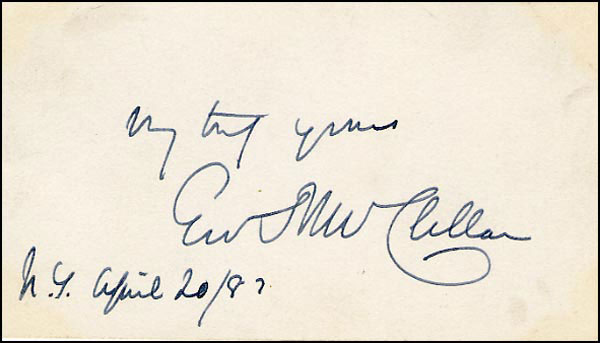 Very truly yours
Geo B McClellan
N.Y. April 20/82